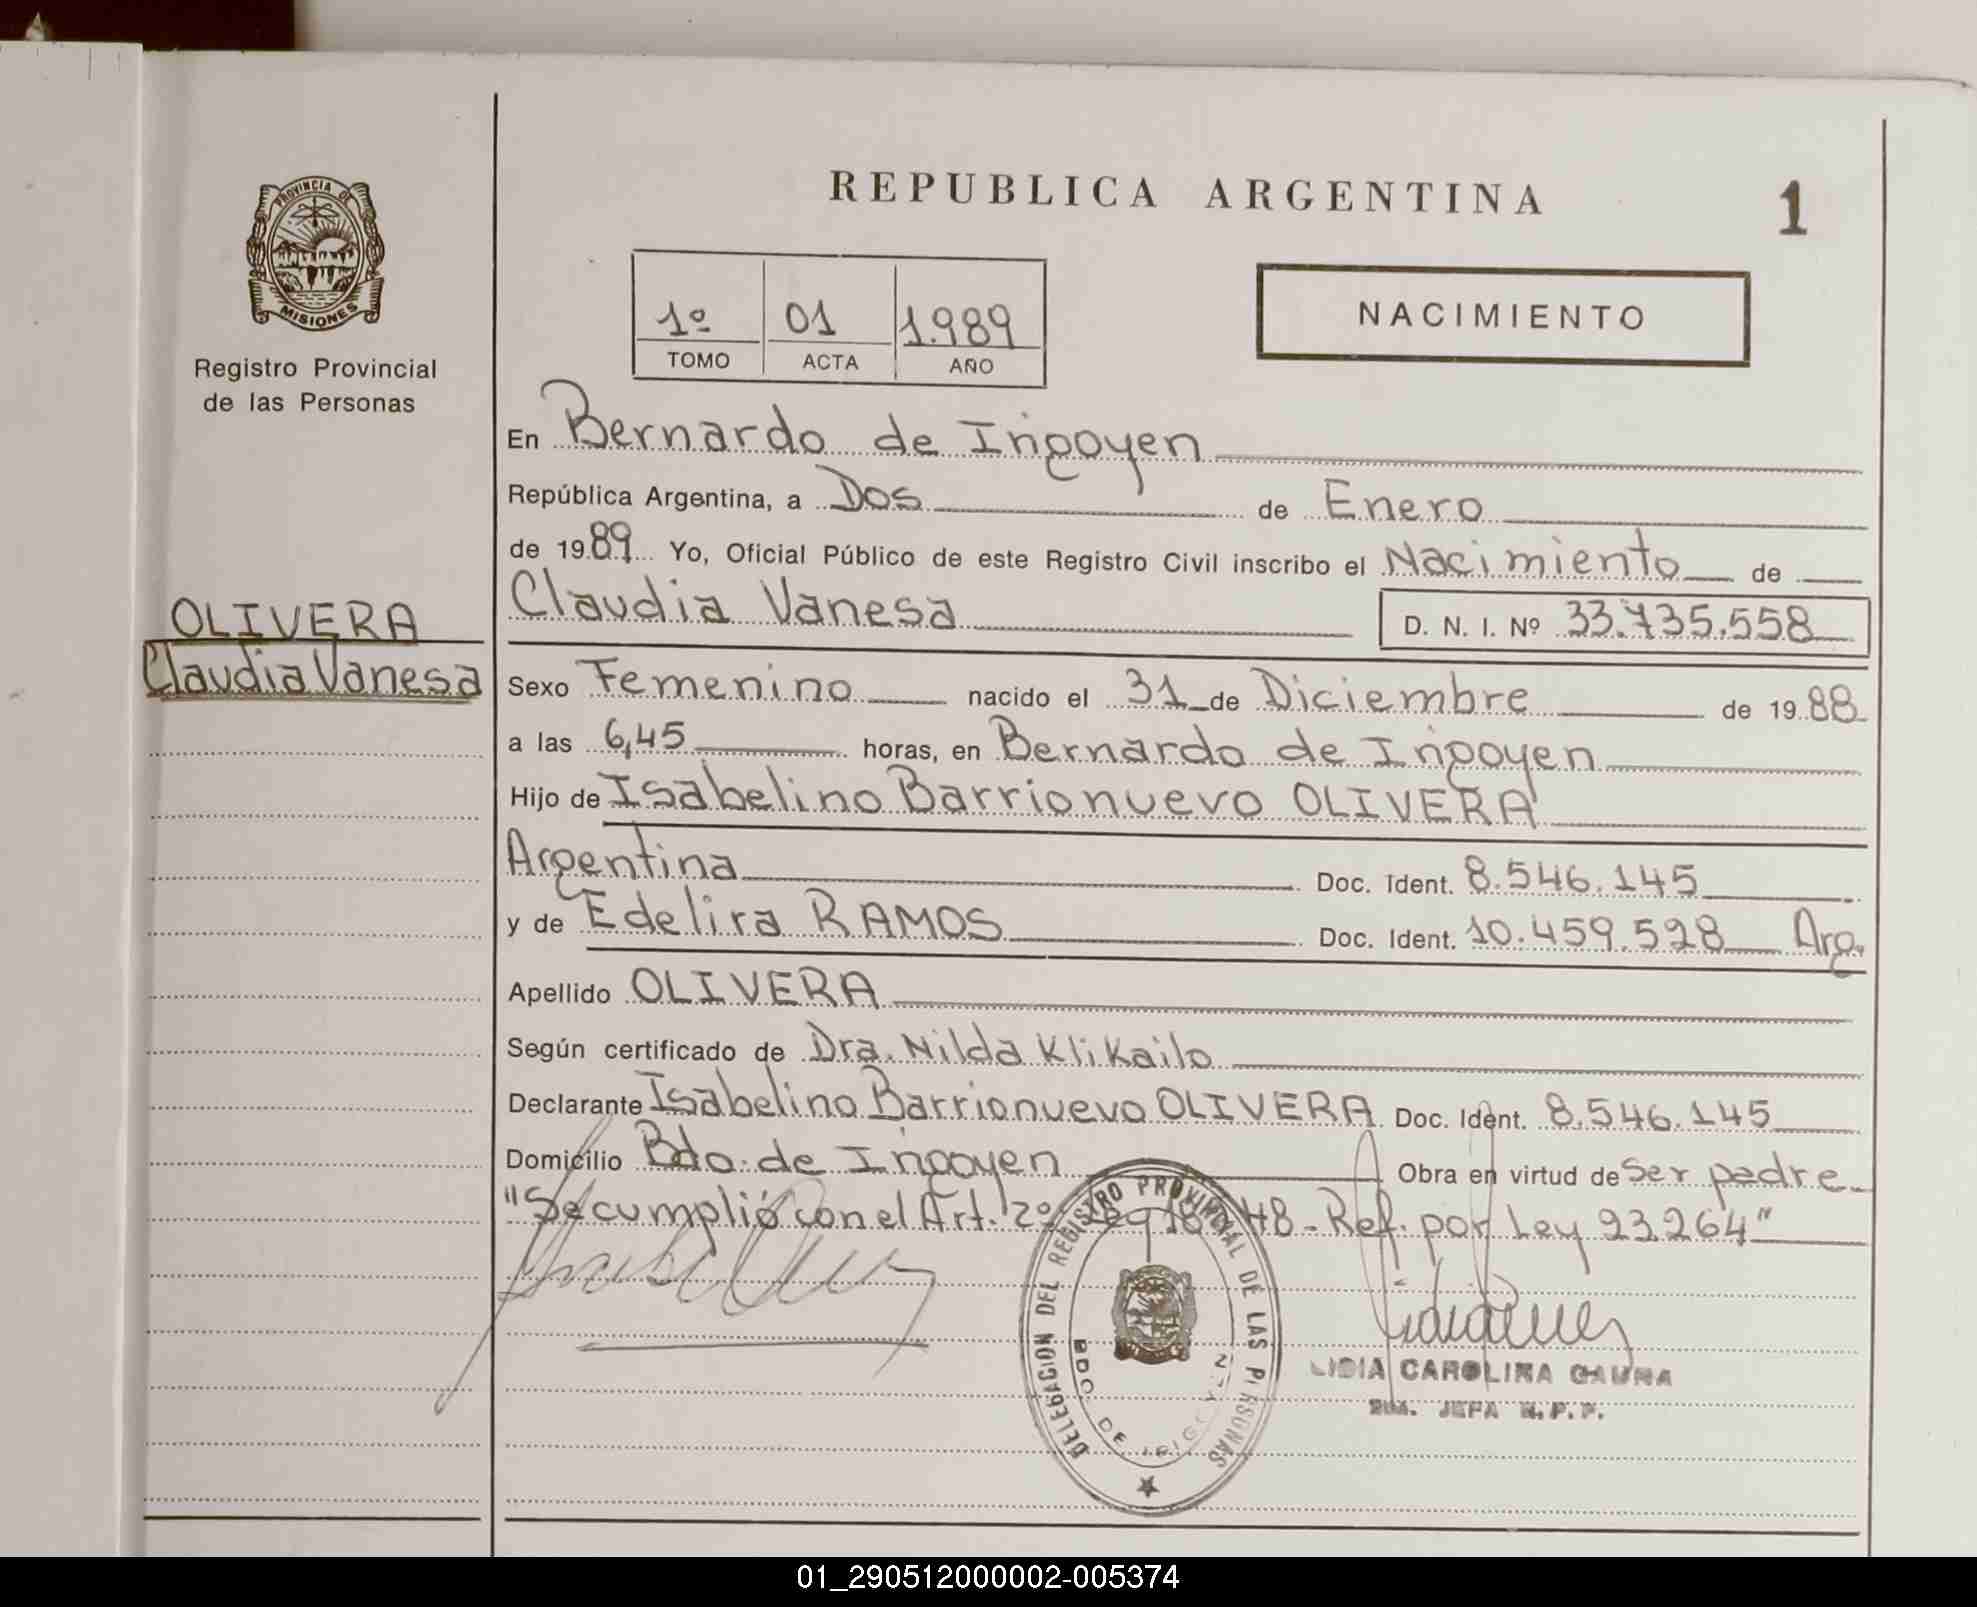 REPUBLICA ARGENTINA
1
PROVINCIA DE
MISIONES
Registro Provincial
de las Personas
1º 01 1.989
TOMO ACTA AÑO
NACIMIENTO
En Bernardo de Irigoyen
República Argentina, a Dos de Enero
de 1989 Yo, Oficial Público de este Registro Civil inscribo el Nacimiento de
Claudia Vanesa D. N. I. Nº 33.735.558
OLIVERA
Claudia Vanesa
Sexo Femenino nacido el 31 de Diciembre de 1988
a las 6,45 horas, en Bernardo de Irigoyen
Hijo de Isabelino Barrionuevo OLIVERA
Argentina Doc. Ident. 8.546.145
y de Edelira RAMOS Doc. Ident. 10.459.528 Arg.
Apellido OLIVERA
Según certificado de Dra. Nilda Klikailo
Declarante Isabelino Barrionuevo OLIVERA Doc. Ident. 8.546.145
Domicilio Bdo. de Irigoyen Obra en virtud de ser padre
"Se cumplió con el Art. 2º Ley - Ref. por Ley 23.264"
DELEGACION DEL REGISTRO PROVINCIAL DE LAS PERSONAS
BDO. DE IRIGOYEN
LIDIA CAROLINA GAUNA
JEFA R.P.P.
01_290512000002-005374